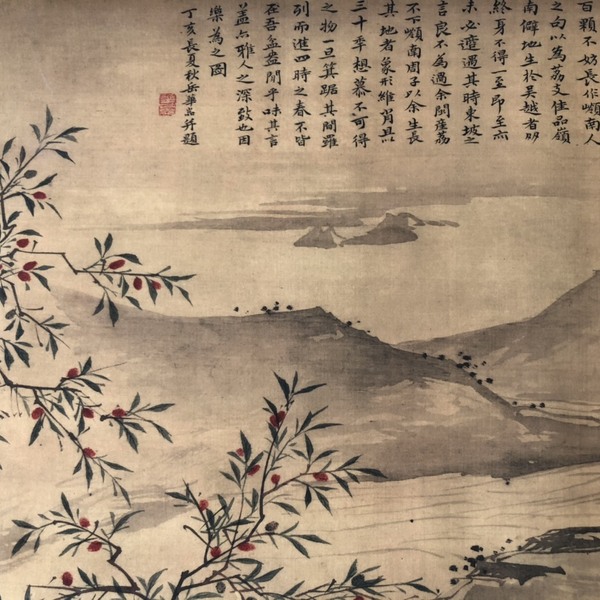 百顆不妨長作嶺南人
之句以為荔支佳品嶺
南僻地生於吳越者
終身不得一至即至亦
未必適遇其時東坡之
言良不為過余閒荔
不下嶺南周子以余生長
其地者象形維肖且以
三十年想慕不可得
之物一旦箕踞其間雖
列而進四時之春不皆
在吾盃盎間乎味其言
蓋亦雅人之深致也因
樂為之圖
丁亥長夏秋岳華嵒并題